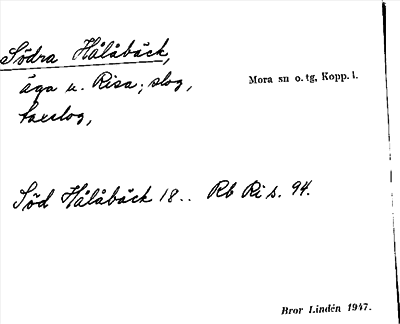 Södra Hålåbäck,
äga u. Risa; slog,
Mora sn o. tg, Kopp. l.
taxslog,
Söd Hålåbäck 18.. Rb Ri s. 94.
Bror Lindén 1947.